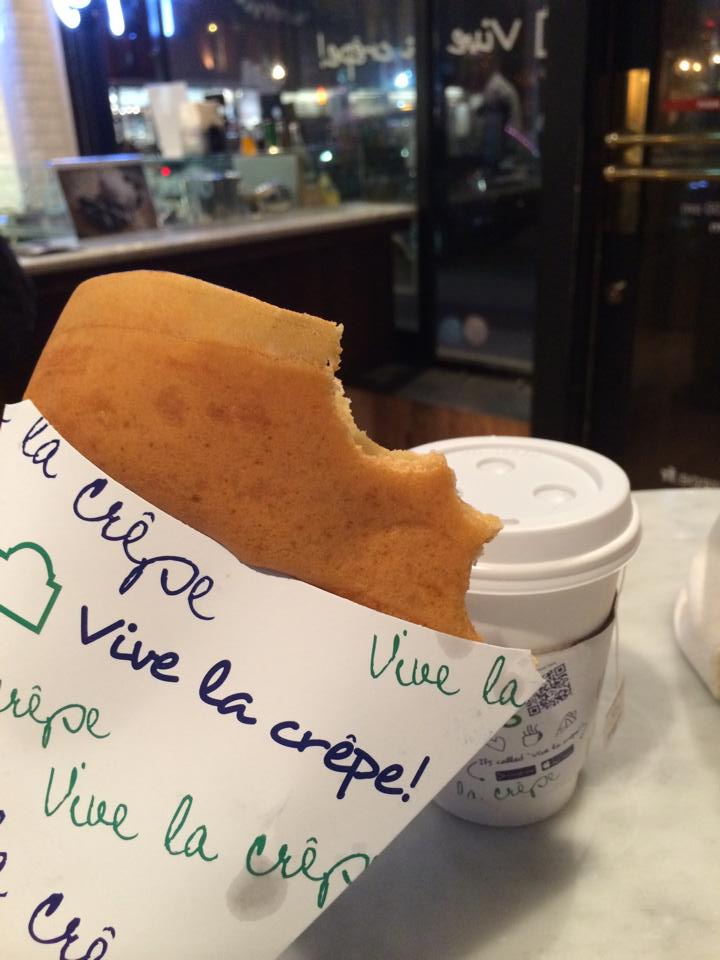 Vive
crêpe!
la
crêpe
Vive la crêpe!
Vive la
crêpe
Vive la crêp
crê
It's called "Vive la crêpe"
la crêpe